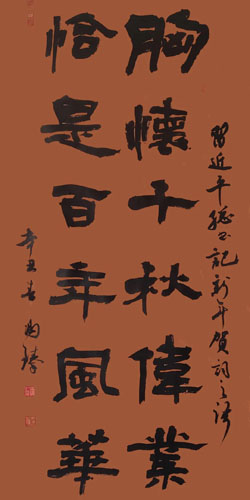 胸懷千秋偉業
恰是百年風華
習近平總書記新年賀詞之語
辛丑春